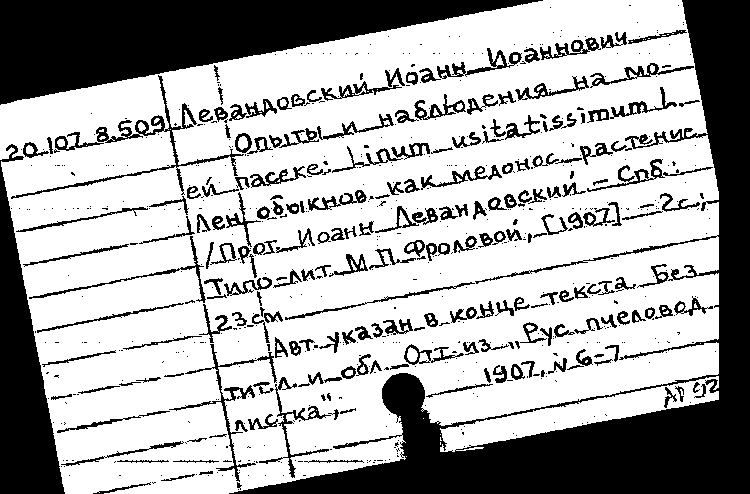 20.107.8.509 Левандовский, Иоанн Иоаннович
Опыты и наблюдения на мо-
ей пасеке: Linum usitatissimum L.
Лен обыкнов. как медонос. растение
/Прот. Иоанн Левандовский. - Спб.:
Типо-лит. М.П. Фроловой, [1907]. - 2с.;
23см
Авт. указан в конце текста. Без
тит.л. и обл. Отт. из „Рус. пчеловод.
листка", 1907, N 6-7
АР 92